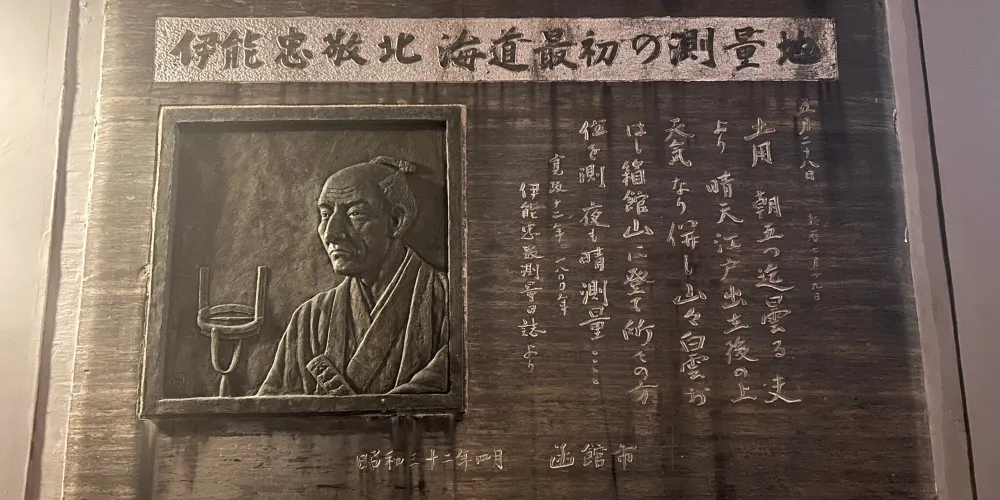 伊能忠敬北海道最初の測量地
五月二八日 新暦七月十九日
土用 朝五つ迄曇る 夫
より 晴天江戸出立後の上
天気なり併し山々白雲お
ほし箱館山に登て所々の方
位を測 夜も晴測量こゝも
寛政十二年 一八〇〇年
伊能忠敬測量日誌より
昭和三十二年四月 函館市